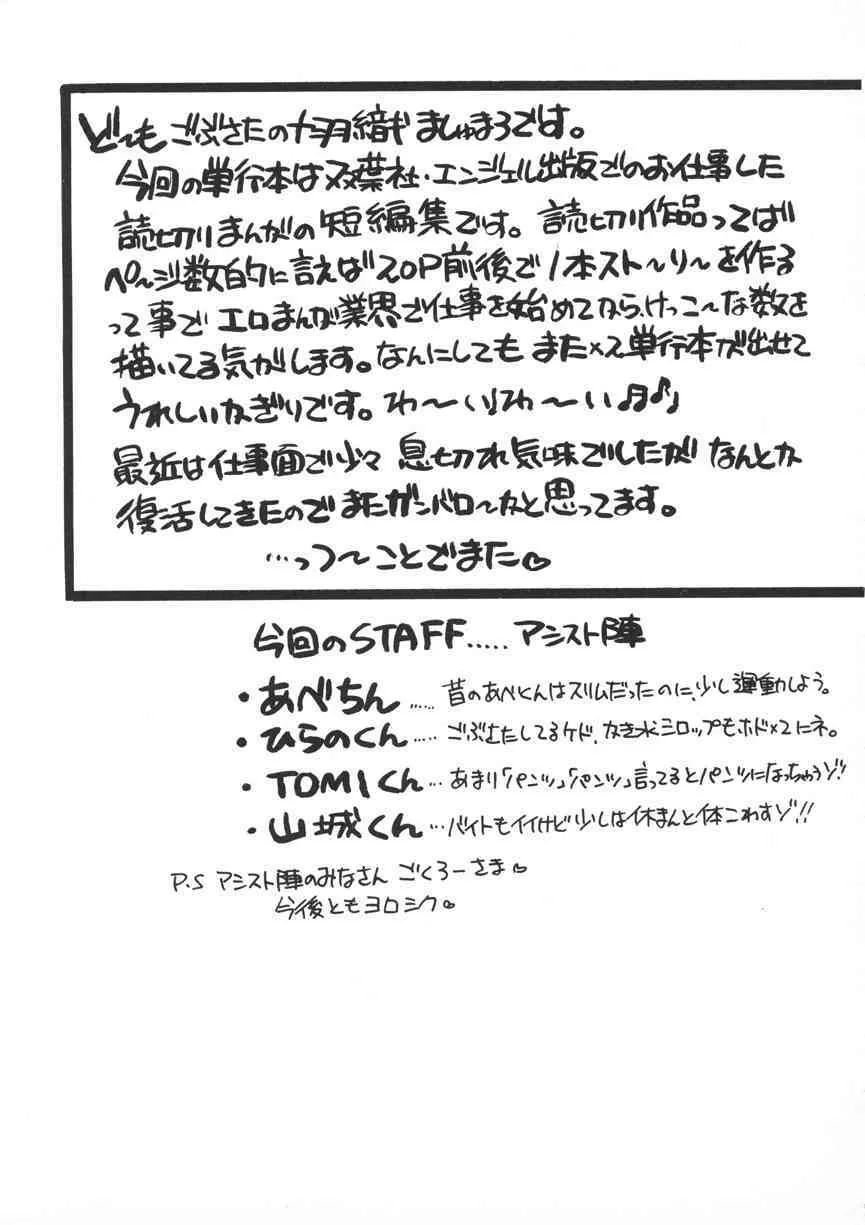 ど〜も ごぶさたの ましゅまろです。
今回の単行本は双葉社・エンジェル出版でのお仕事した
読切りまんがの短編集です。 読切り作品ってば
ペ〜ジ数的に言えば20P前後で1本スト〜リ〜を作る
って事で エロまんが業界で仕事を始めてから、けっこ〜な数を
描いてる気がします。なんにしても また×2単行本が出せて
うれしいかぎりです。 わ〜い♪わ〜い♪♪
最近は仕事面で少々 息切れ気味でしたが なんとか
復活してきたので またガンバロ〜かと思ってます。
…っつ〜ことでまた♡
今回のSTAFF..... アシスト陣
・あべちん ……昔のあべくんはスリムだったのに、少し運動しよう。
・ひらのくん ……ごぶさたしてるケド、かき氷シロップもホド×2にネ。
・TOMIくん …あまり「パンツ」「パンツ」言ってるとパンツになっちゃうゾ!!
・山城くん …バイトもイイけど少しは休まんと体こわすゾ!!
P.S アシスト陣のみなさん ごくろーさま♡
今後ともヨロシク♡